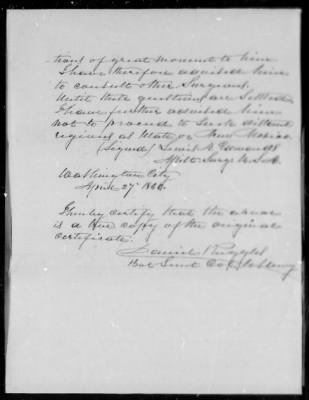 tions of great moment to him
I have therefore advised him
to consult other Surgeons.
Until these questions are settled
I have further advised him
not to proceed to such distant
regions as Utah or New Mexico
(Signed) Lewis A. Edwards
Surgn U.S.A.
Washington City
April 27th
I hereby certify that the above
is a true copy of the original
certificate.
Daniel Ruggles
Bvt Lieut Col